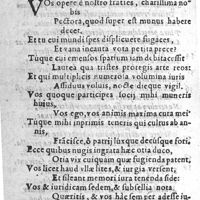 VOs opere è nostro fratres, charissima no-
bis
Pectora, quod super est munus habere
decet.
Et tu cui mundi spes displicuere fugaces,
Et vana incauta vota petita prece?
Túque cui emensos spatium iam debita cessit
Laurea quâ tristes protegis arte reos:
Et qui multiplicis numerosa volumina iuris
Assiduus voluis, nocte dieque vigil.
Vos quoque participes socij mihi muneris
huius,
Vos ego, vos animis maxima cura mei
Túque mihi inprimis teneris qui cultus ab an-
nis,
Fracisce, & patrij lux que decusque fori,
Ecce quibus nugis ingrata hæc otia duco,
Otia vix cuiquam quæ fugienda patent,
Vos licet haud vllæ lites, & iurgia versent,
Et festam memori iura tenenda side:
Vos & iuridicam sedem, & subsellia nota
Quæritis, & vos hæc sem per adesse in-